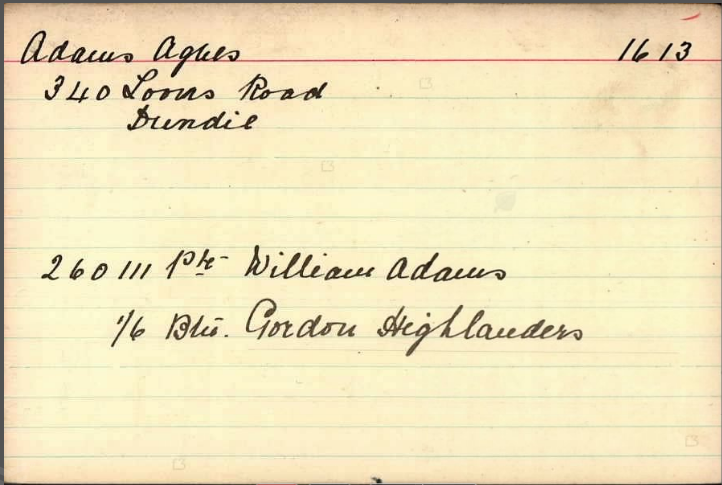 Adams Agnes 1613
340 Loons Road
Dundee
260111 Pte William Adams
1/6 Btn. Gordon Highlanders